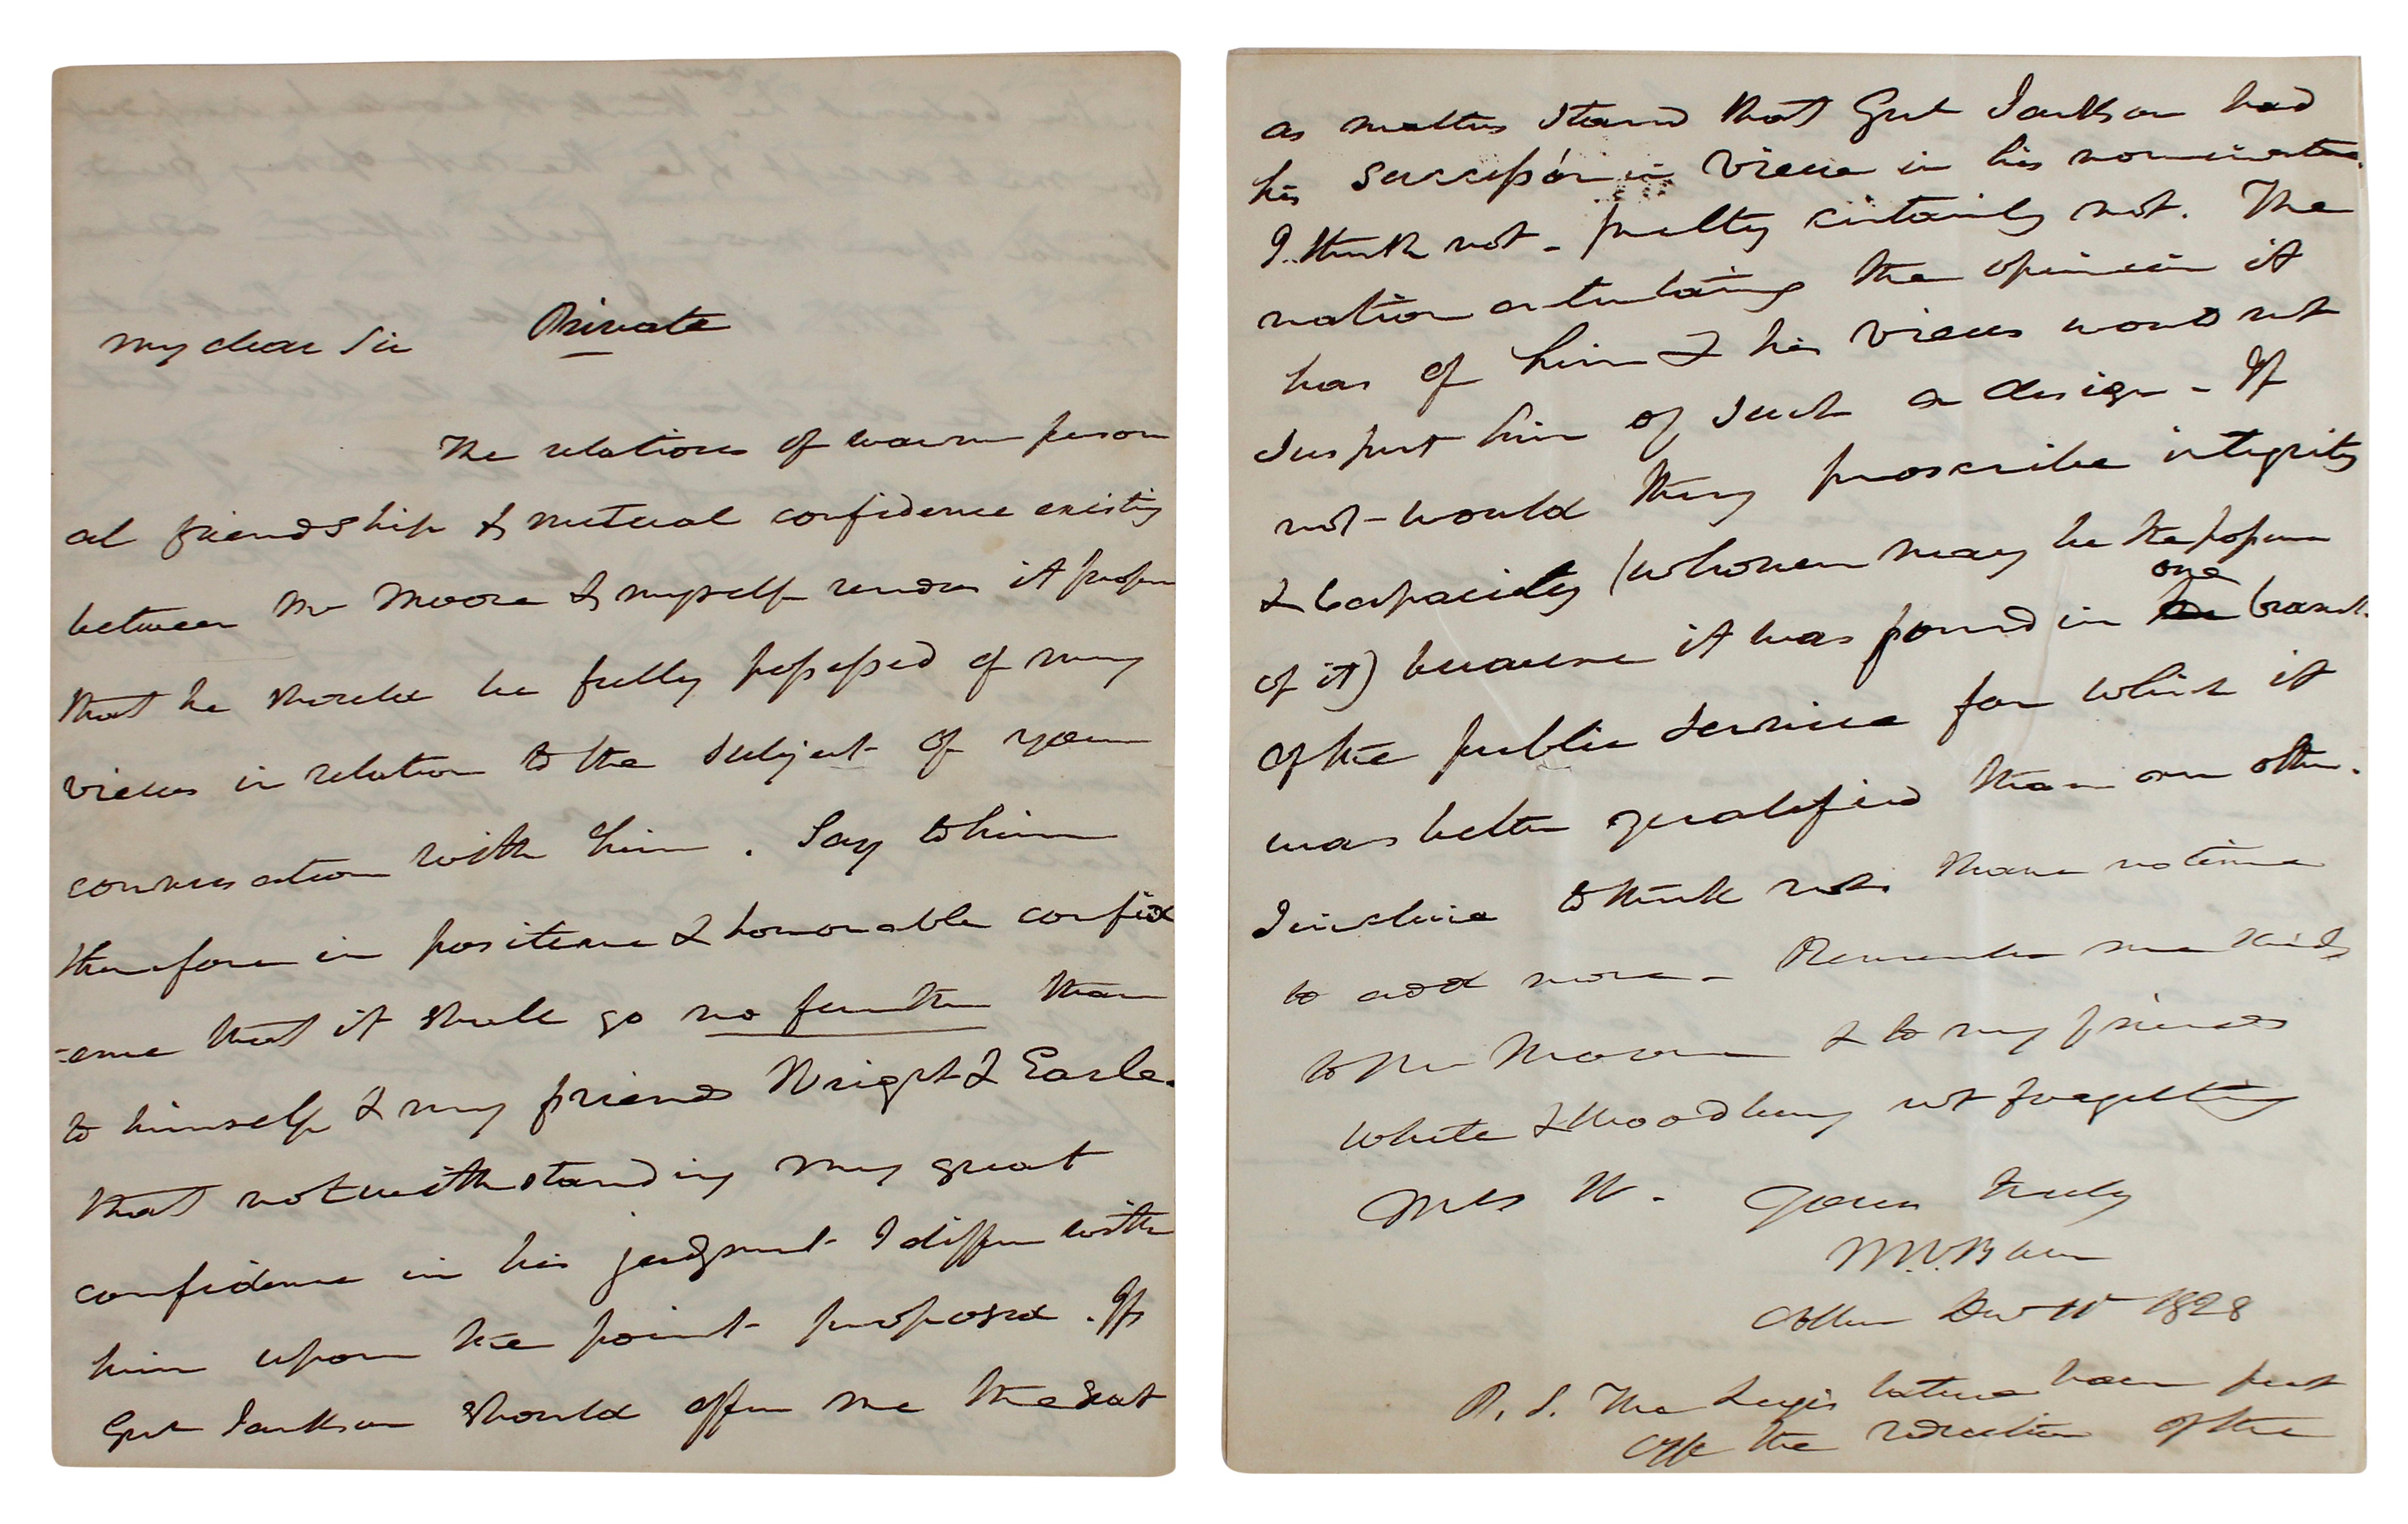 Private
My dear Sir
The relations of warm person
al friendship & mutual confidence existing
between Mr Moore & myself renders it proper
that he should be fully possessed of my
views in relation to the subject of your
conversation with him. Say to him
therefore in positive & honorable confid
-ence that it shall go no further than
to himself & my friends Wright & Earle.
that notwithstanding my great
confidence in his judgment I differ with
him upon the point proposed. If
Genl Jackson should offer me the seat
as matters stand that Genl Jackson had
his successor in view in his nomination.
I think not - pretty certainly not. The
nation entertaining the opinion it
has of him & his views would not
suspect him of such a design - If
not - would they proscribe integrity
& Capacity (whoever may be the
of it) because it was found in one branch
of the public service for which it
was better qualified than an other.
I incline to think not. I have no time
to add more - Remember me kindly
to Mr & to my friends
White & Woodbury not forgetting
Mrs W. Yours truly
M.V.Buren
1828
P.S. The Legislature have put
off the of the